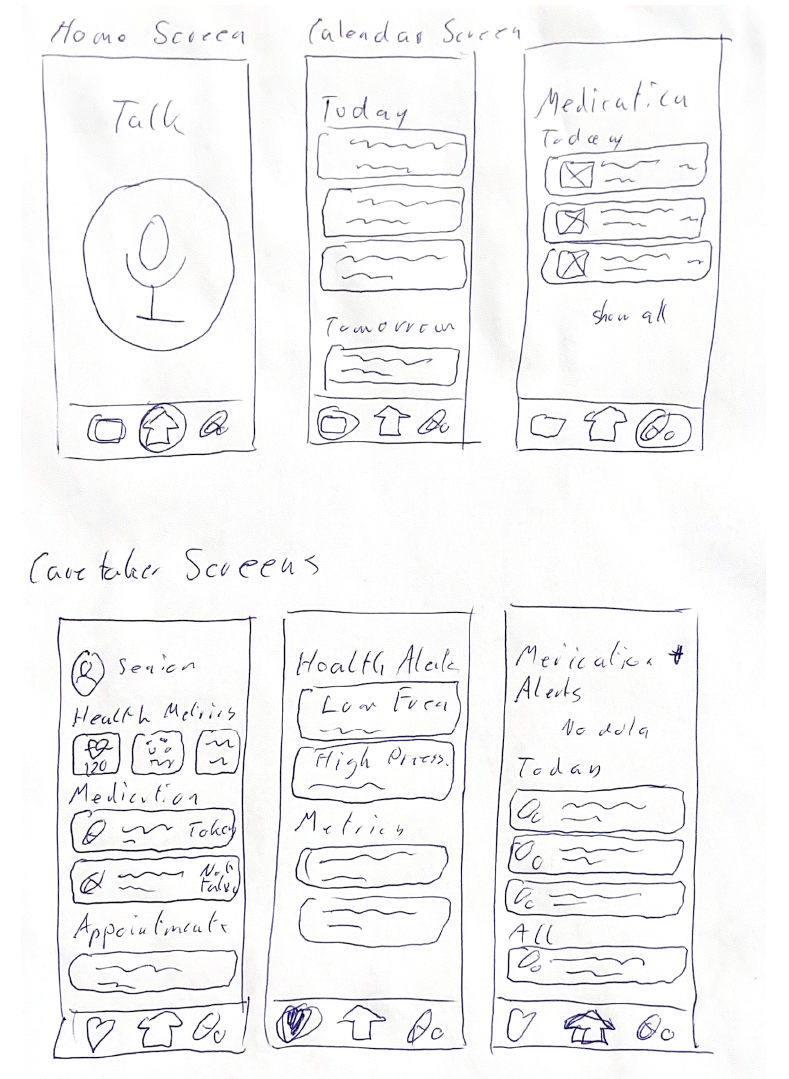 Home Screen
Calendar Screen
Talk
Today
Tomorrow
Medication
Today
show all
Caretaker Screens
Senior
Health Metrics
120
Medication
Taken
Not
taken
Appointments
Health Alerts
Low Freq
High Press.
Metrics
Medication +
Alerts
No data
Today
All